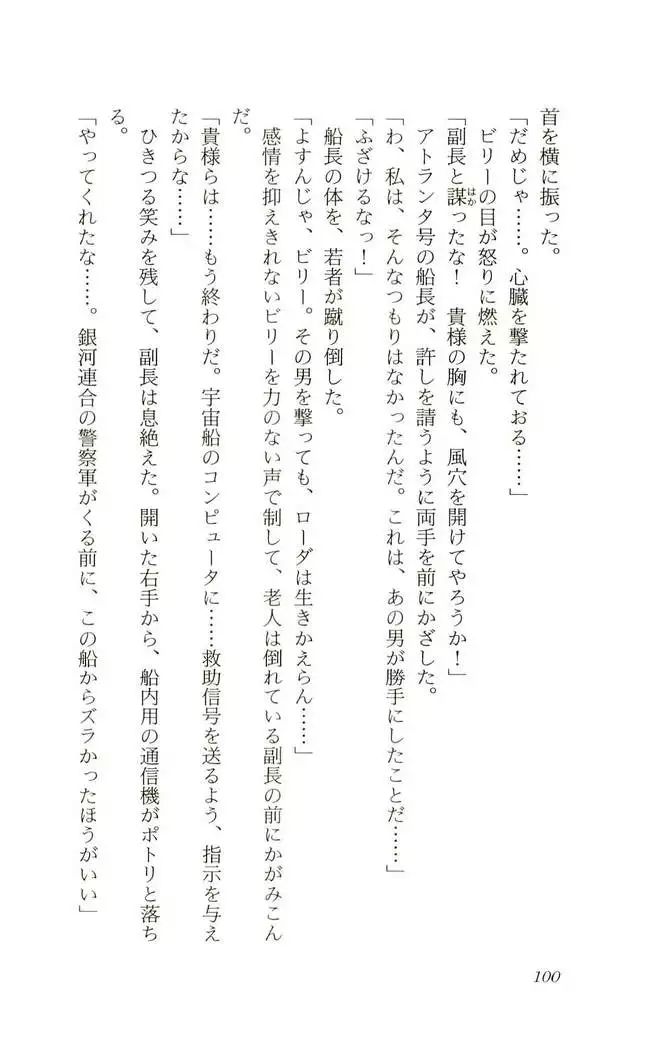 首を横に振った。
「だめじゃ……。心臓を撃たれておる……」
ビリーの目が怒りに燃えた。
「副長と謀ったな！　貴様の胸にも、風穴を開けてやろうか！」
アトランタ号の船長が、許しを請うように両手を前にかざした。
「わ、私は、そんなつもりはなかったんだ。これは、あの男が勝手にしたことだ……」
「ふざけるなっ！」
船長の体を、若者が蹴り倒した。
「よすんじゃ、ビリー。その男を撃っても、ローダは生きかえらん……」
感情を抑えきれないビリーを力のない声で制して、老人は倒れている副長の前にかがみこん
だ。
「貴様らは……もう終わりだ。宇宙船のコンピュータに……救助信号を送るよう、指示を与え
たからな……」
ひきつる笑みを残して、副長は息絶えた。開いた右手から、船内用の通信機がポトリと落ち
る。
「やってくれたな……。銀河連合の警察軍がくる前に、この船からズラかったほうがいい」
はか
100